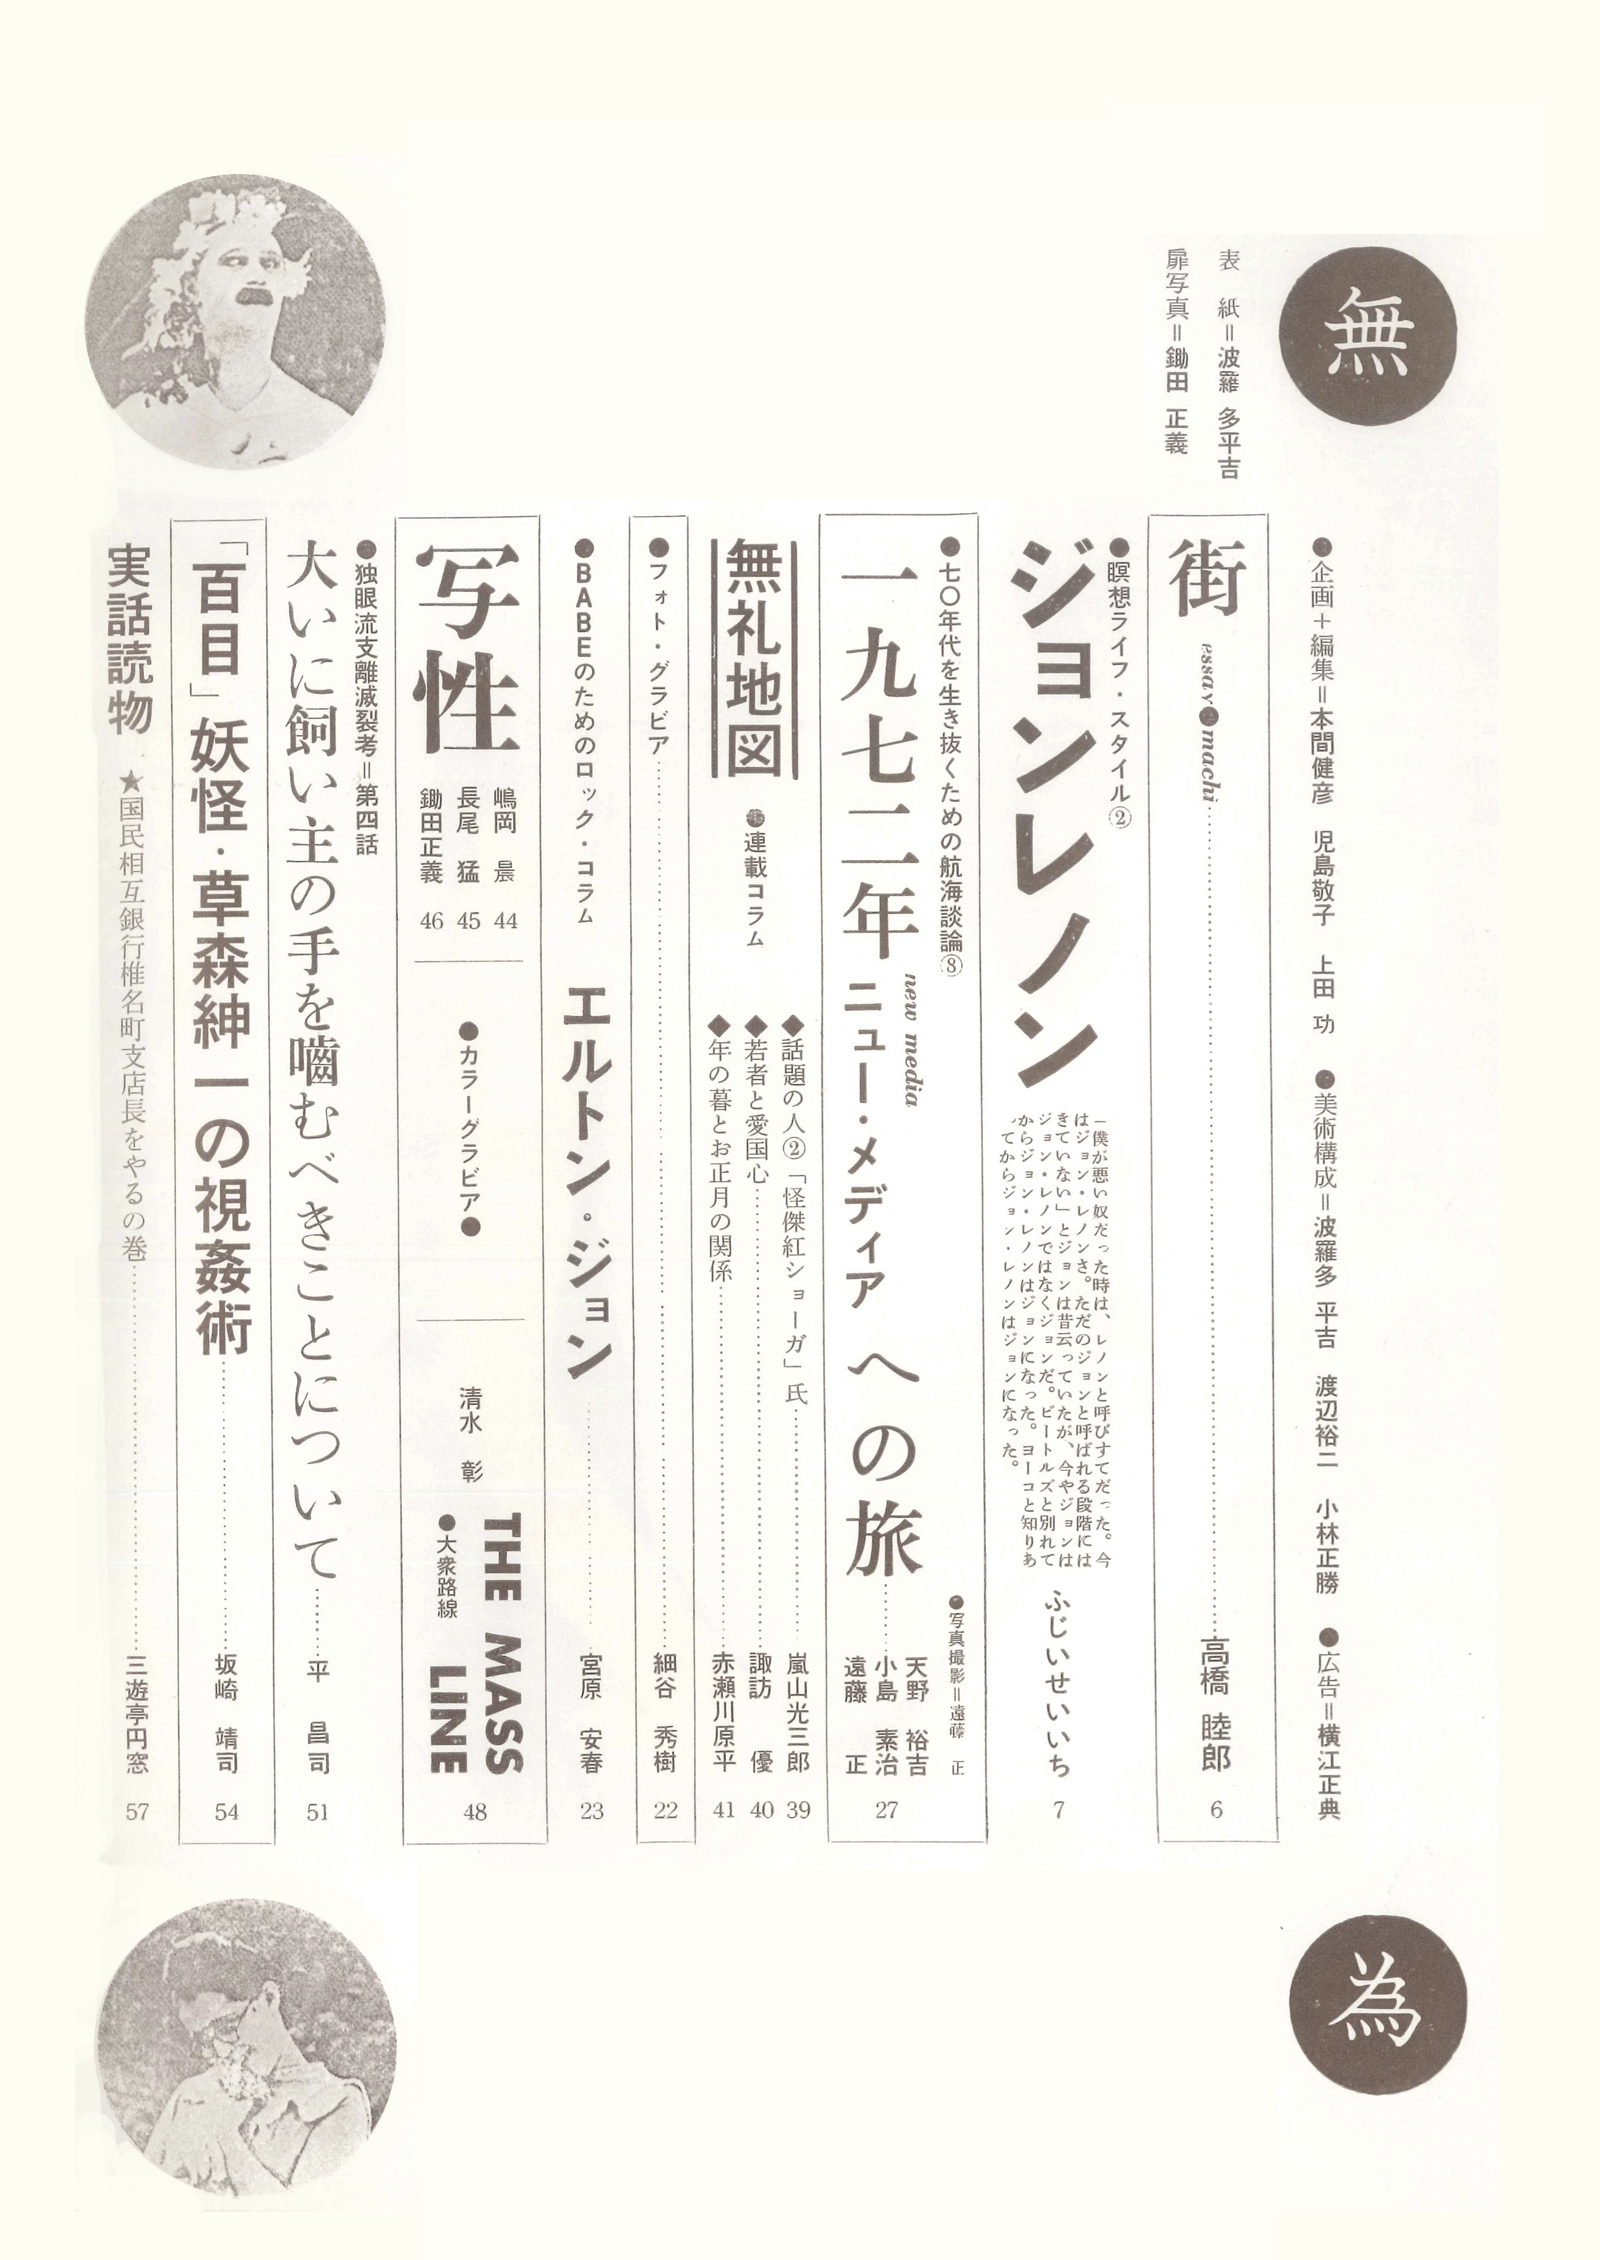 無
為
表　紙＝波羅　多平吉
扉写真＝鋤田　正義
●企画＋編集＝本間健彦　児島敬子　上田　功　●美術構成＝波羅多　平吉　渡辺裕二　小林正勝　●広告＝横江正典
街
essay●machi
高橋　睦郎
6
●瞑想ライフ・スタイル②
ジョンレノン
―僕が悪い奴だった時は、レノンと呼びすてだった。今
はジョン・レノンさ。ただのジョンと呼ばれる段階には
きていない」とジョンは昔云っていたが、今やジョンは
ジョン・レノンではなくジョンだ。ビートルズと別れて
からジョン・レノンはジョンになった。ヨーコと知りあ
ってからジョン・レノンはジョンになった。
ふじいせいいち
7
●七〇年代を生き抜くための航海談論⑧
一九七二年
new media
ニュー・メディア
への旅
●写真撮影＝遠藤　正
天野　裕吉
小島　素治
遠藤　正
27
無礼地図
●連載コラム
◆話題の人②「怪傑紅ショーガ」氏
嵐山光三郎
39
◆若者と愛国心
諏訪　優
40
◆年の暮とお正月の関係
赤瀬川原平
41
●フォト・グラビア
細谷　秀樹
22
●BABEのためのロック・コラム
エルトン・ジョン
宮原　安春
23
写性
嶋岡　晨　44
長尾　猛　45
鋤田正義　46
●カラーグラビア●
清水　彰
THE MASS
LINE
●大衆路線
48
●独眼流支離滅裂考＝第四話
大いに飼い主の手を嚙むべきことについて
平　昌司
51
「百目」妖怪・草森紳一の視姦術
坂崎　靖司
54
実話読物
★国民相互銀行椎名町支店長をやるの巻
三遊亭円窓
57